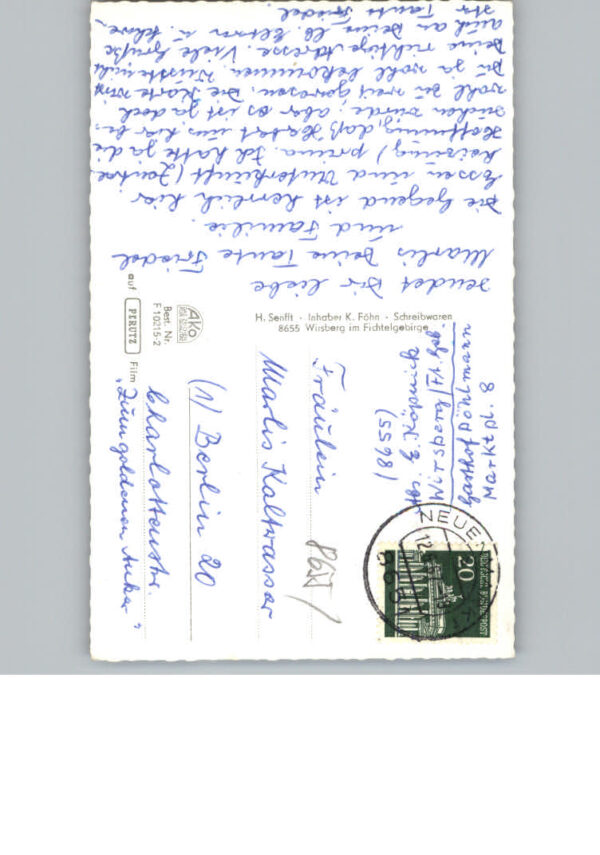 sendet Dir liebe
Marlis Deine Tante Friedel
und Familie.
Die Gegend ist herrlich hier
Essen und Unterkunft (Zentral
heizung) prima. Ich hatte ja die
Hoffnung, daß Habet uns hier be
suchen würde, aber es ist ja doch
wohl zu weit gewesen. Die Karte wirst
Du ja wohl bekommen. Wusste nicht
Deine richtige Adresse. Viele Grüße
auch an Deine lb. Eltern u.
Tante Friedel
H. Senfft · Inhaber K. Föhn · Schreibwaren
8655 Wirsberg im Fichtelgebirge
AKO
Best. Nr.
F 10215-2
auf PERUTZ Film
Wirsberg/Ft. Geb.
Gasthof Pöhlmann
Marktpl. 8
(5598)
Fräulein
Marlis Kaltwasser
(1) Berlin 20
Charlottenstr.
"Zum goldenen Anker"
865/
NEUEN
20
DEUTSCHE BUNDESPOST